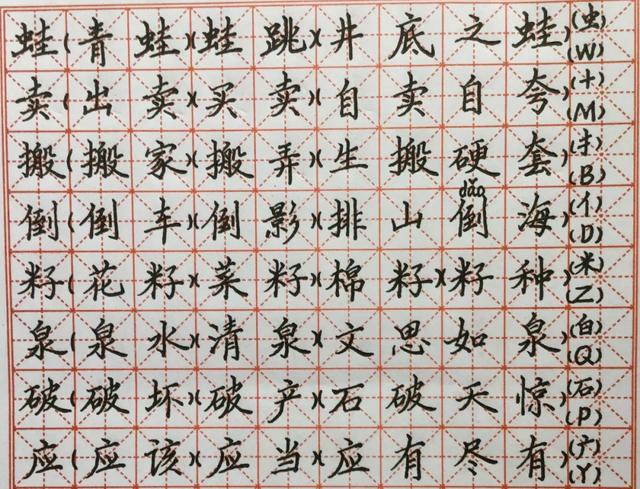 蛙(青蛙)(蛙跳)(井底之蛙)(虫)(W)
卖(出卖)(买卖)(自卖自夸)(十)(M)
搬(搬家)(搬弄)(生搬硬套)(扌)(B)
倒(倒车)(倒影)(排山倒dǎo海)(亻)(D)
籽(花籽)(菜籽)(棉籽)(籽种)(米)(Z)
泉(泉水)(清泉)(文思如泉)(白)(Q)
破(破坏)(破产)(石破天惊)(石)(P)
应(应该)(应当)(应有尽有)(广)(Y)